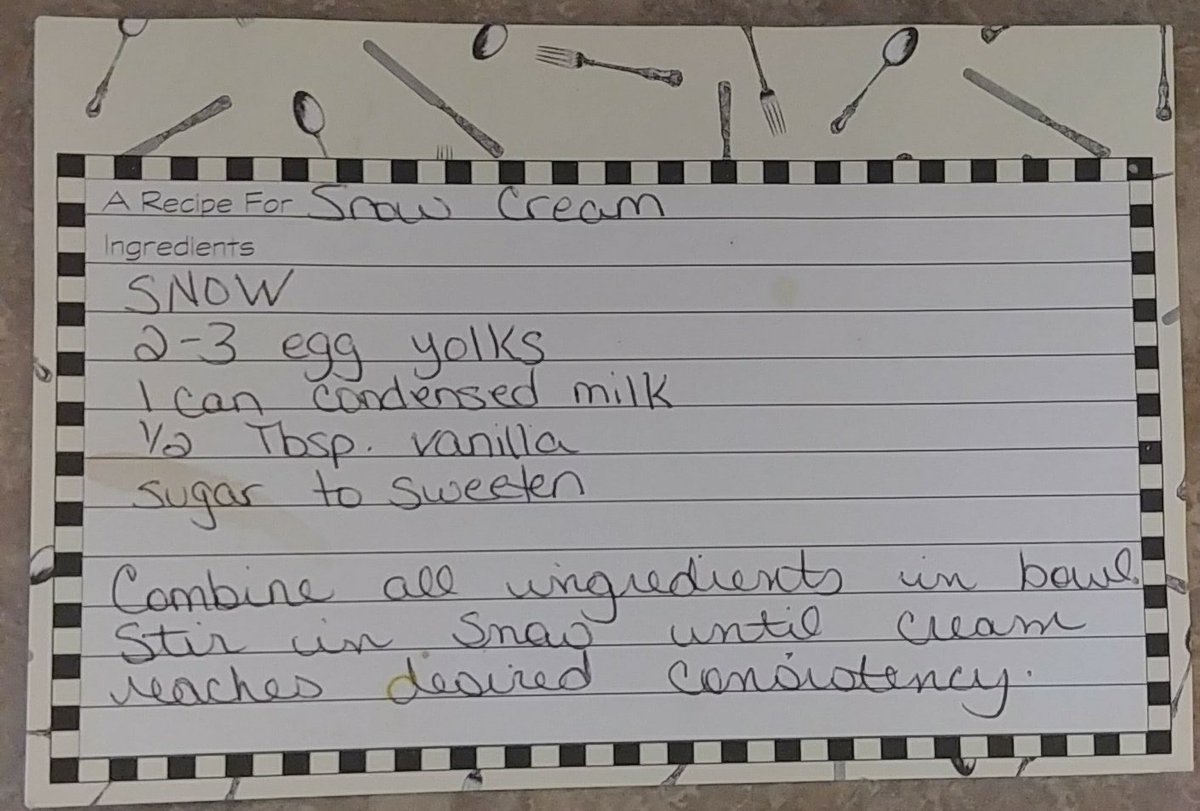 A Recipe For Snow Cream
Ingredients
SNOW
2-3 egg yolks
1 can condensed milk
1/2 Tbsp. vanilla
sugar to sweeten
Combine all ingredients in bowl.
Stir in snow until cream
reaches desired consistency.